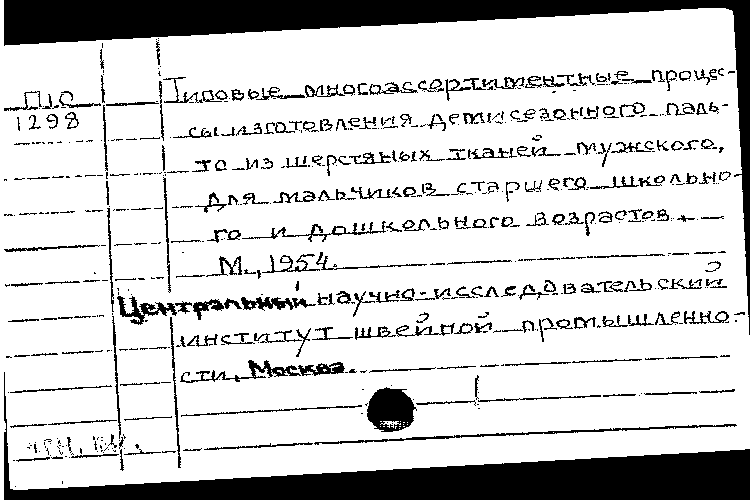 П10
1298
Типовые многоассортиментные процес-
сы изготовления демисезонного паль-
то из шерстяных тканей мужского,
для мальчиков старшего школьно-
го и дошкольного возрастов. —
М., 1954.
Центральный научно-исследовательский
институт швейной промышленно-
сти. Москва.